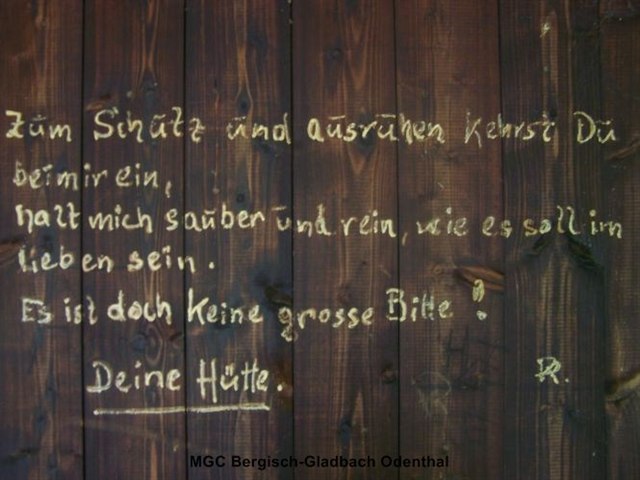 Zum Schutz und ausruhen kehrst Du
bei mir ein,
halt mich sauber und rein, wie es soll im
Lieben sein.
Es ist doch keine grosse Bitte!
Deine Hütte. R.
MGC Bergisch-Gladbach Odenthal